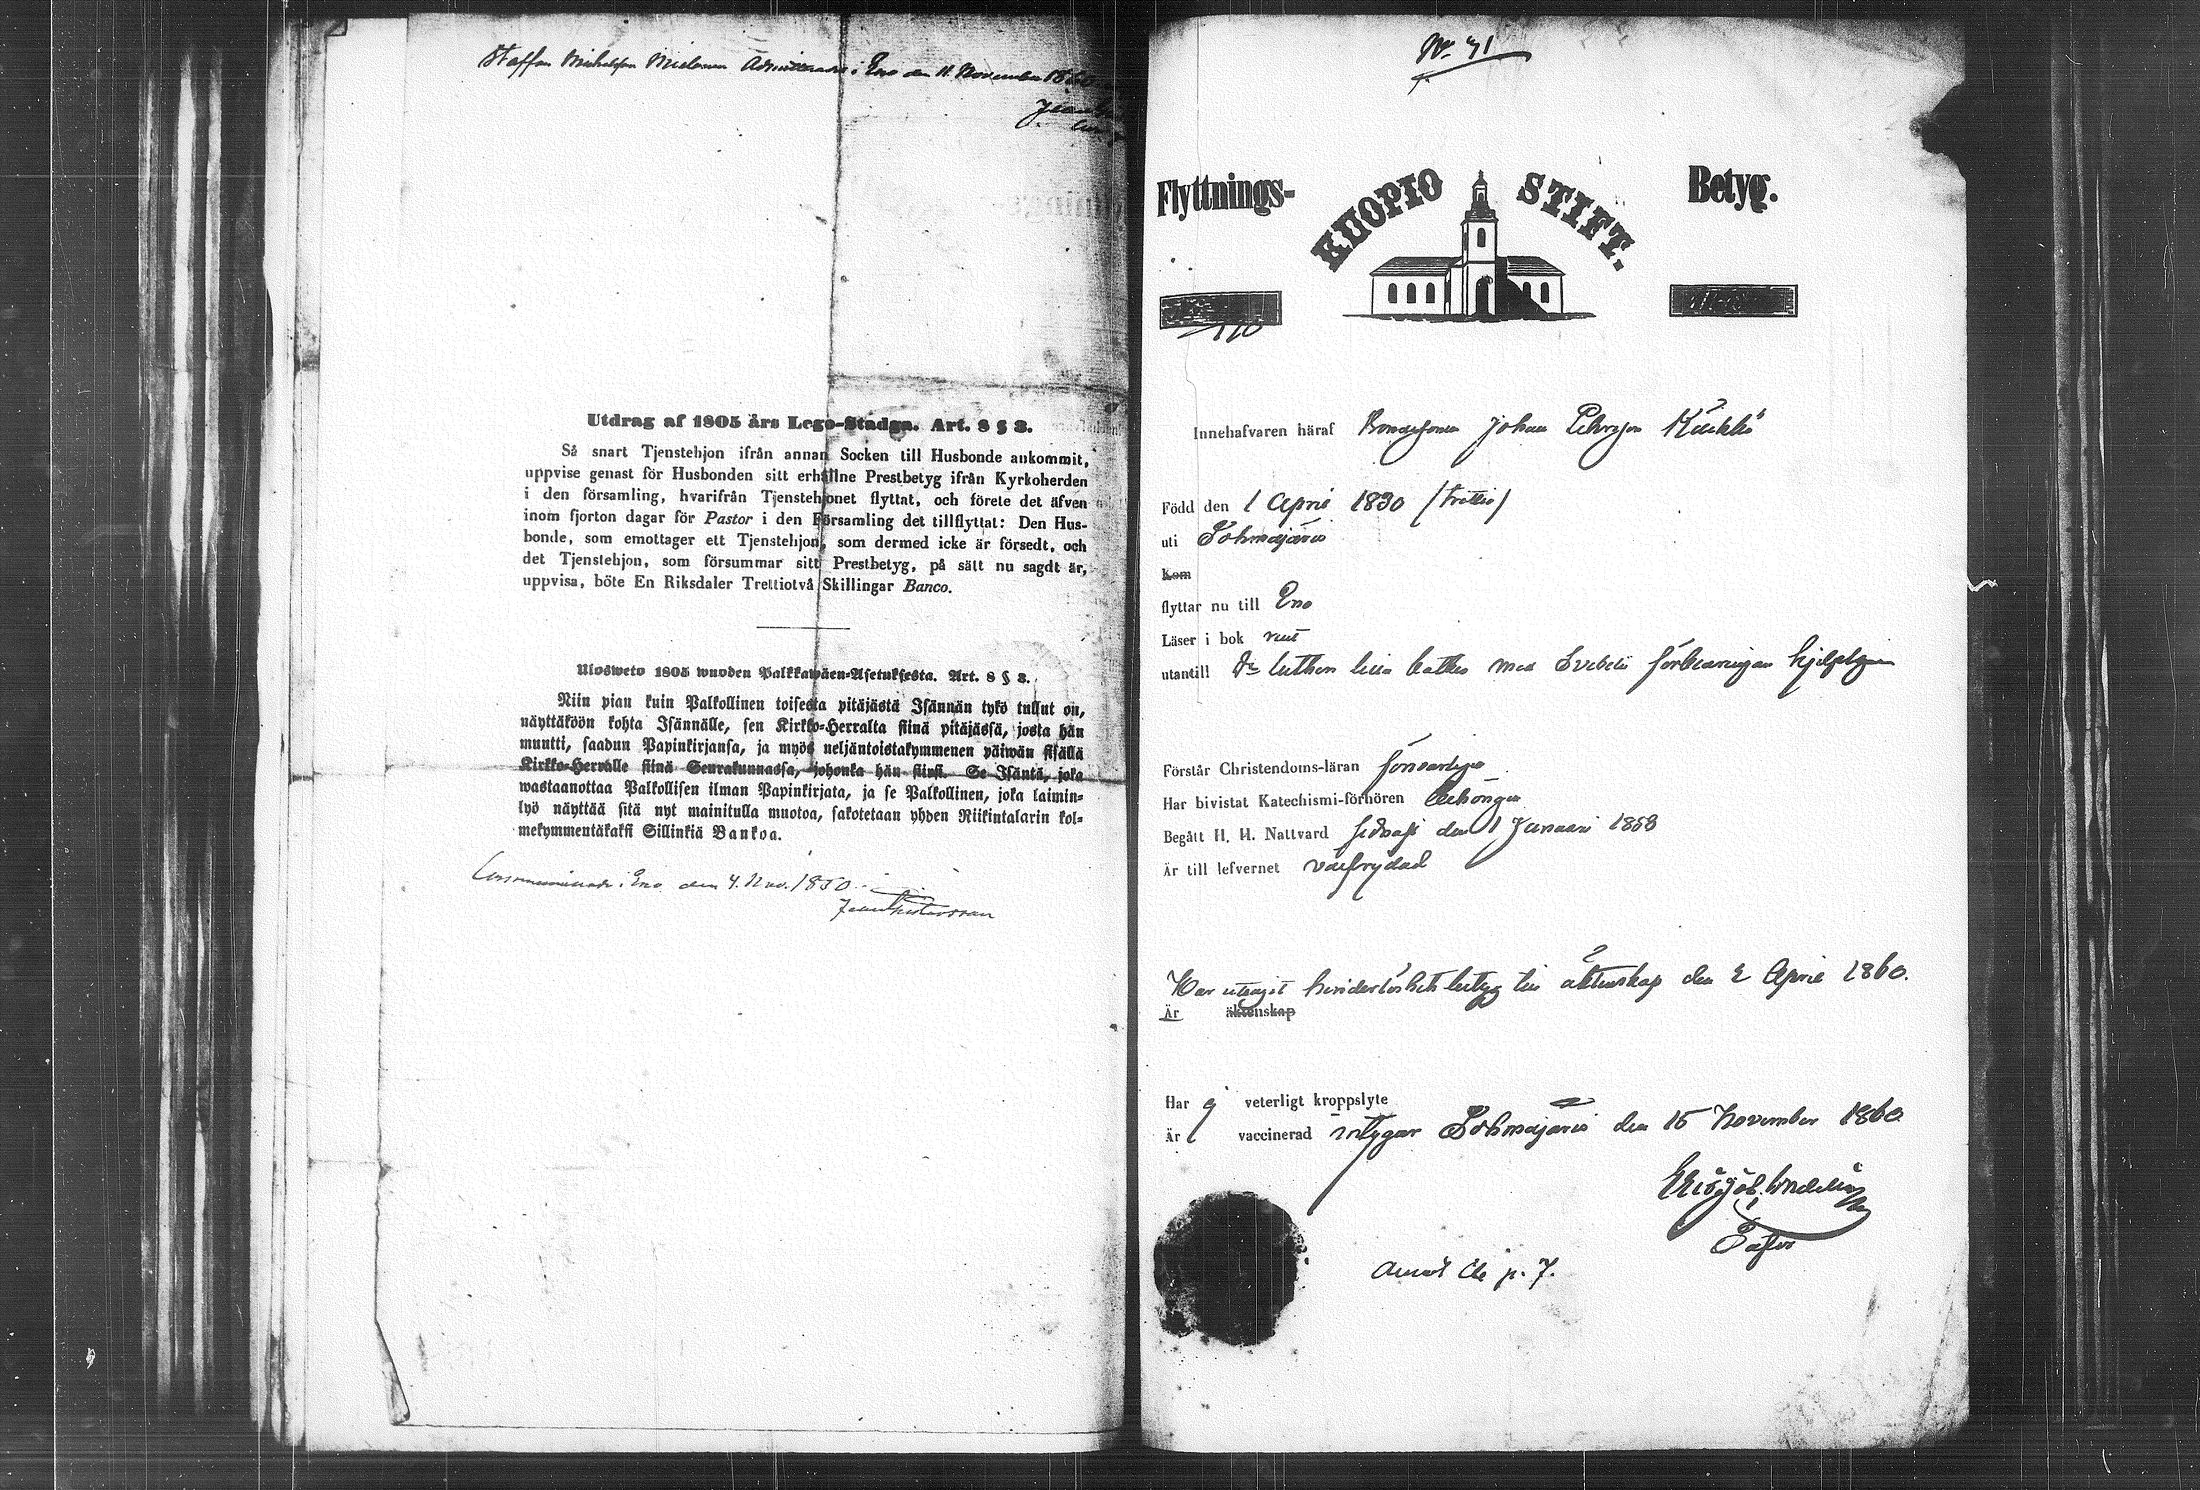 Staffan Michelsson Mielonen Admitterades i Eno den 11 November 1860
Utdrag af 1805 års Lego-Stadga. Art. 8 § 3.
Så snart Tjenstehjon ifrån annan Socken till Husbonde ankommit,
uppvise genast för Husbonden sitt erhållne Prestbetyg ifrån Kyrkoherden
i den församling, hvarifrån Tjenstehjonet flyttat, och förete det äfven
inom fjorton dagar för Pastor i den Församling det tillflyttat: Den Hus-
bonde, som emottager ett Tjenstehjon, som dermed icke är försedt, och
det Tjenstehjon, som försummar sitt Prestbetyg, på sätt nu sagdt är,
uppvisa, böte En Riksdaler Trettiotvå Skillingar Banco.
Ulosweto 1805 wuoden Palkkawäen-Asetuksesta. Art. 8 § 3.
Niin pian kuin Palkollinen toisesta pitäjästä Isännän tykö tullut on,
näyttäköön kohta Isännälle, sen Kirkko-Herralta siinä pitäjässä, josta hän
muutti, saadun Papinkirjansa, ja myös neljäntoistakymmenen päiwän sisällä
Kirkko-Herralle siinä Seurakunnassa, johonka hän siirsi. Se Isäntä, joka
wastaanottaa Palkollisen ilman Papinkirjata, ja se Palkollinen, joka laimin-
lyö näyttää sitä nyt mainitulla muotoa, sakotetaan yhden Riikintalarin kol-
mekymmentäkaksi Sillinkiä Bankoa.
i Eno den 4. Nov. 1850
No 71
Flyttnings- KUOPIO STIFT. Betyg.
110
Innehafvaren häraf Bondesonen Johan Pehrsson
Född den 1 April 1830 (trettio)
uti Tohmajärvi
Kom
flyttar nu till Eno
Läser i bok rent
utantill Dr Luthers lilla kathes med Svebelii förklaringar hjelpligen
Förstår Christendoms-läran försvarligen
Har bivistat Katechismi-förhören
Begått H. H. Nattvard sednast den 1 Januari 1858
Är till lefvernet välfrejdad
Har uttagit hinderlöshets betyg till äktenskap den 2 April 1860.
Är äktenskap
Har ej veterligt kroppslyte
Är vaccinerad intygar Tohmajärvi den 15 November 1860
Pastor
p. 7.